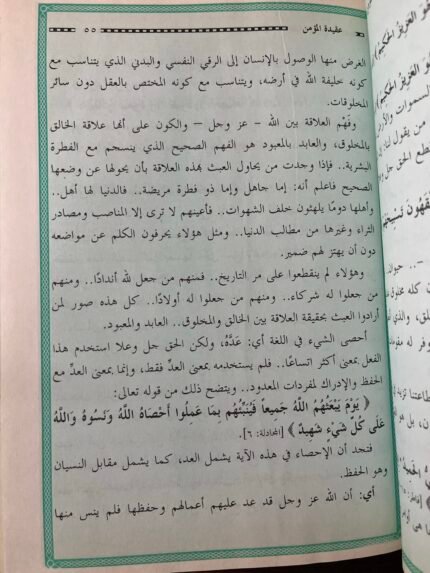 عقيدة المؤمن
٥٥
الغرض منها الوصول بالإنسان إلى الرقي النفسي والبدني الذي يتناسب مع
كونه خليفة الله في أرضه، ويتناسب مع كونه المختص بالعقل دون سائر
المخلوقات.
وفَهْم العلاقة بين الله – عز وجل – والكون على أنها علاقة الخالق
بالمخلوق، والعابد بالمعبود هو الفهم الصحيح الذي ينسجم مع الفطرة
البشرية.. فإذا وجدت من يحاول العبث بهذه العلاقة بأن يحولها عن وضعها
الصحيح فاعلم أنه: إما جاهل وإما ذو فطرة مريضة.. فالدنيا لها أهل..
وأهلها دومًا يلهثون خلف الشهوات.. فأعينهم لا ترى إلا المناصب ومصادر
الثراء وغيرها من مطالب الدنيا.. ومثل هؤلاء يحرفون الكلم عن مواضعه
دون أن يهتز لهم ضمير.
وهؤلاء لم ينقطعوا على مر التاريخ.. فمنهم من جعل لله أندادًا.. ومنهم
من جعلوا له شركاء.. ومنهم من جعلوا له أولادًا.. كل هذه صور لمن
أرادوا العبث بحقيقة العلاقة بين الخالق والمخلوق.. العابد والمعبود.
أحصى الشيء في اللغة أي: عَدَّهُ، ولكن الحق جل وعلا استخدم هذا
الفعل بمعنى أكثر اتساعًا.. فلم يستخدمه بمعنى العدِّ فقط، وإنما بمعنى العدِّ مع
الحفظ والإدراك لمفردات المعدود.. ويتضح ذلك من قوله تعالى:
﴿ يَوْمَ يَبْعَثُهُمُ اللَّهُ جَمِيعاً فَيُنَبِّئُهُم بِمَا عَمِلُوا أَحْصَاهُ اللَّهُ وَنَسُوهُ وَاللَّهُ
عَلَى كُلِّ شَيْءٍ شَهِيدٌ ﴾ [المجادلة: ٦].
فنجد أن الإحصاء في هذه الآية يشمل العد، كما يشمل مقابل النسيان
وهو الحفظ.
أي: أن الله عز وجل قد عد عليهم أعمالهم وحفظها فلم ينس منها